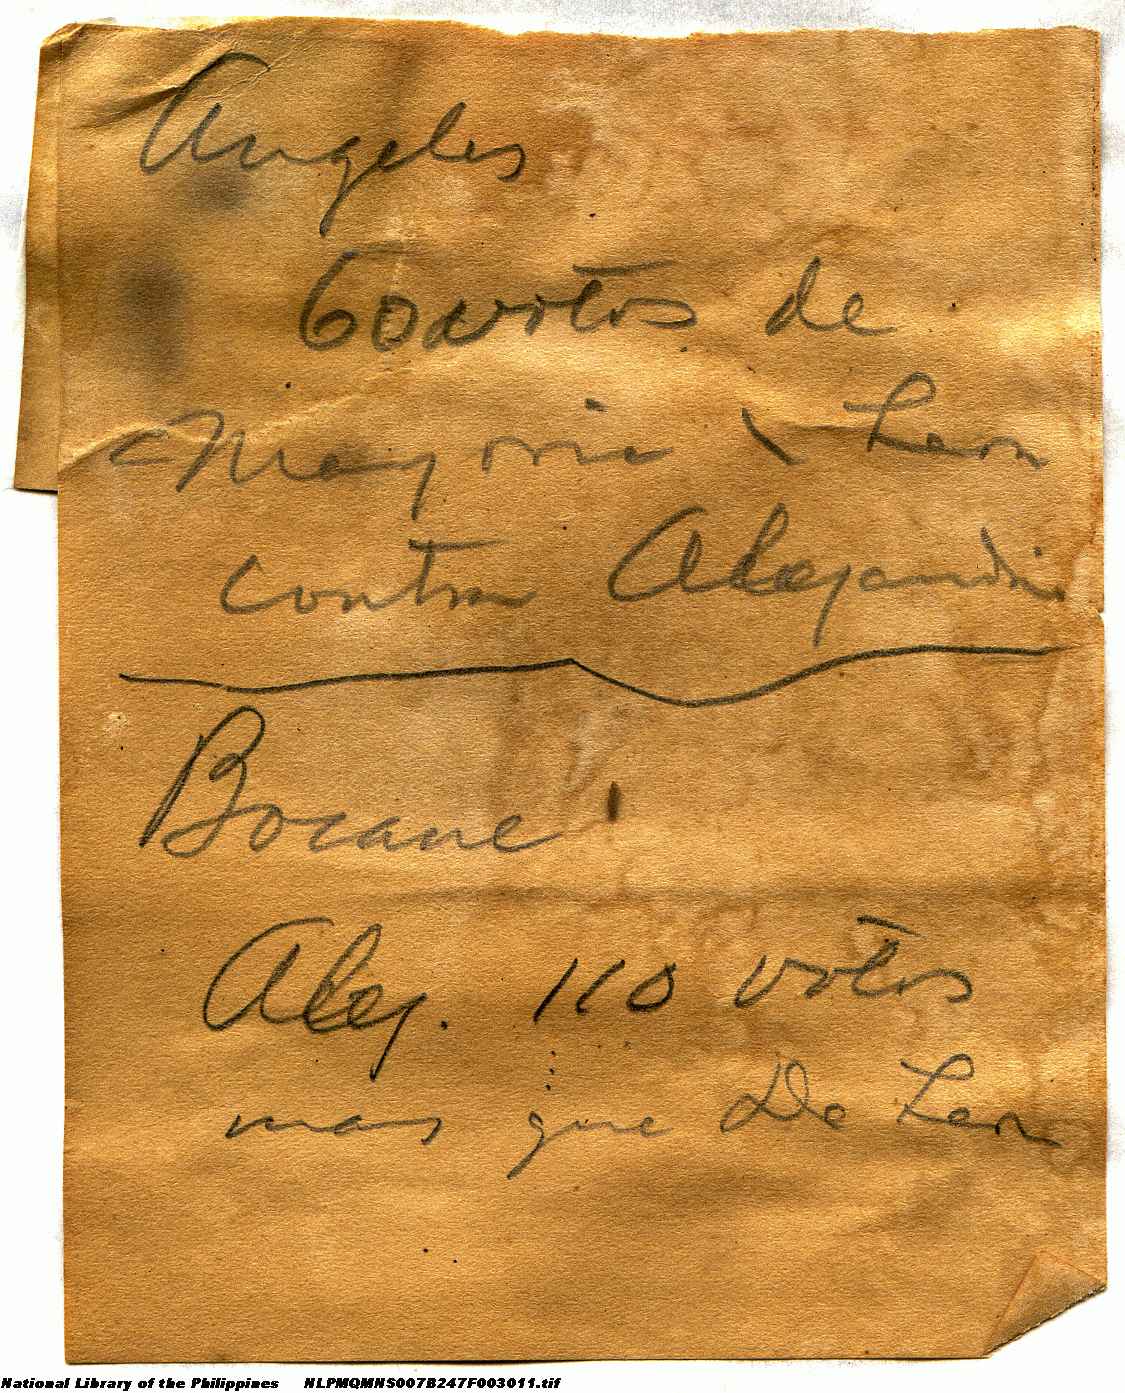 Angeles
60 votos de
mayoria \ Leon
contra Alejandrino
Bocaue
Alej. 110 votos
mas que De Leon
National Library of the Philippines NLPMQMNS007B247F003011.tif